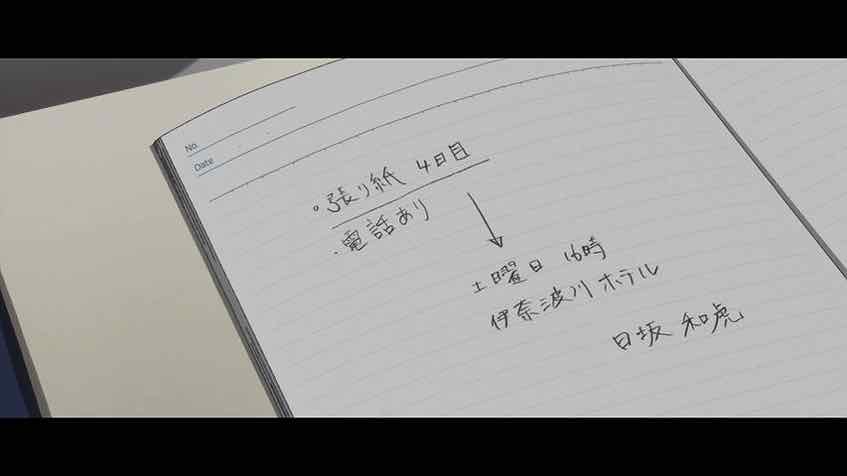 No
Date
。張り紙 4日目
・電話あり
土曜日 16時
伊奈波川ホテル
日坂 和虎